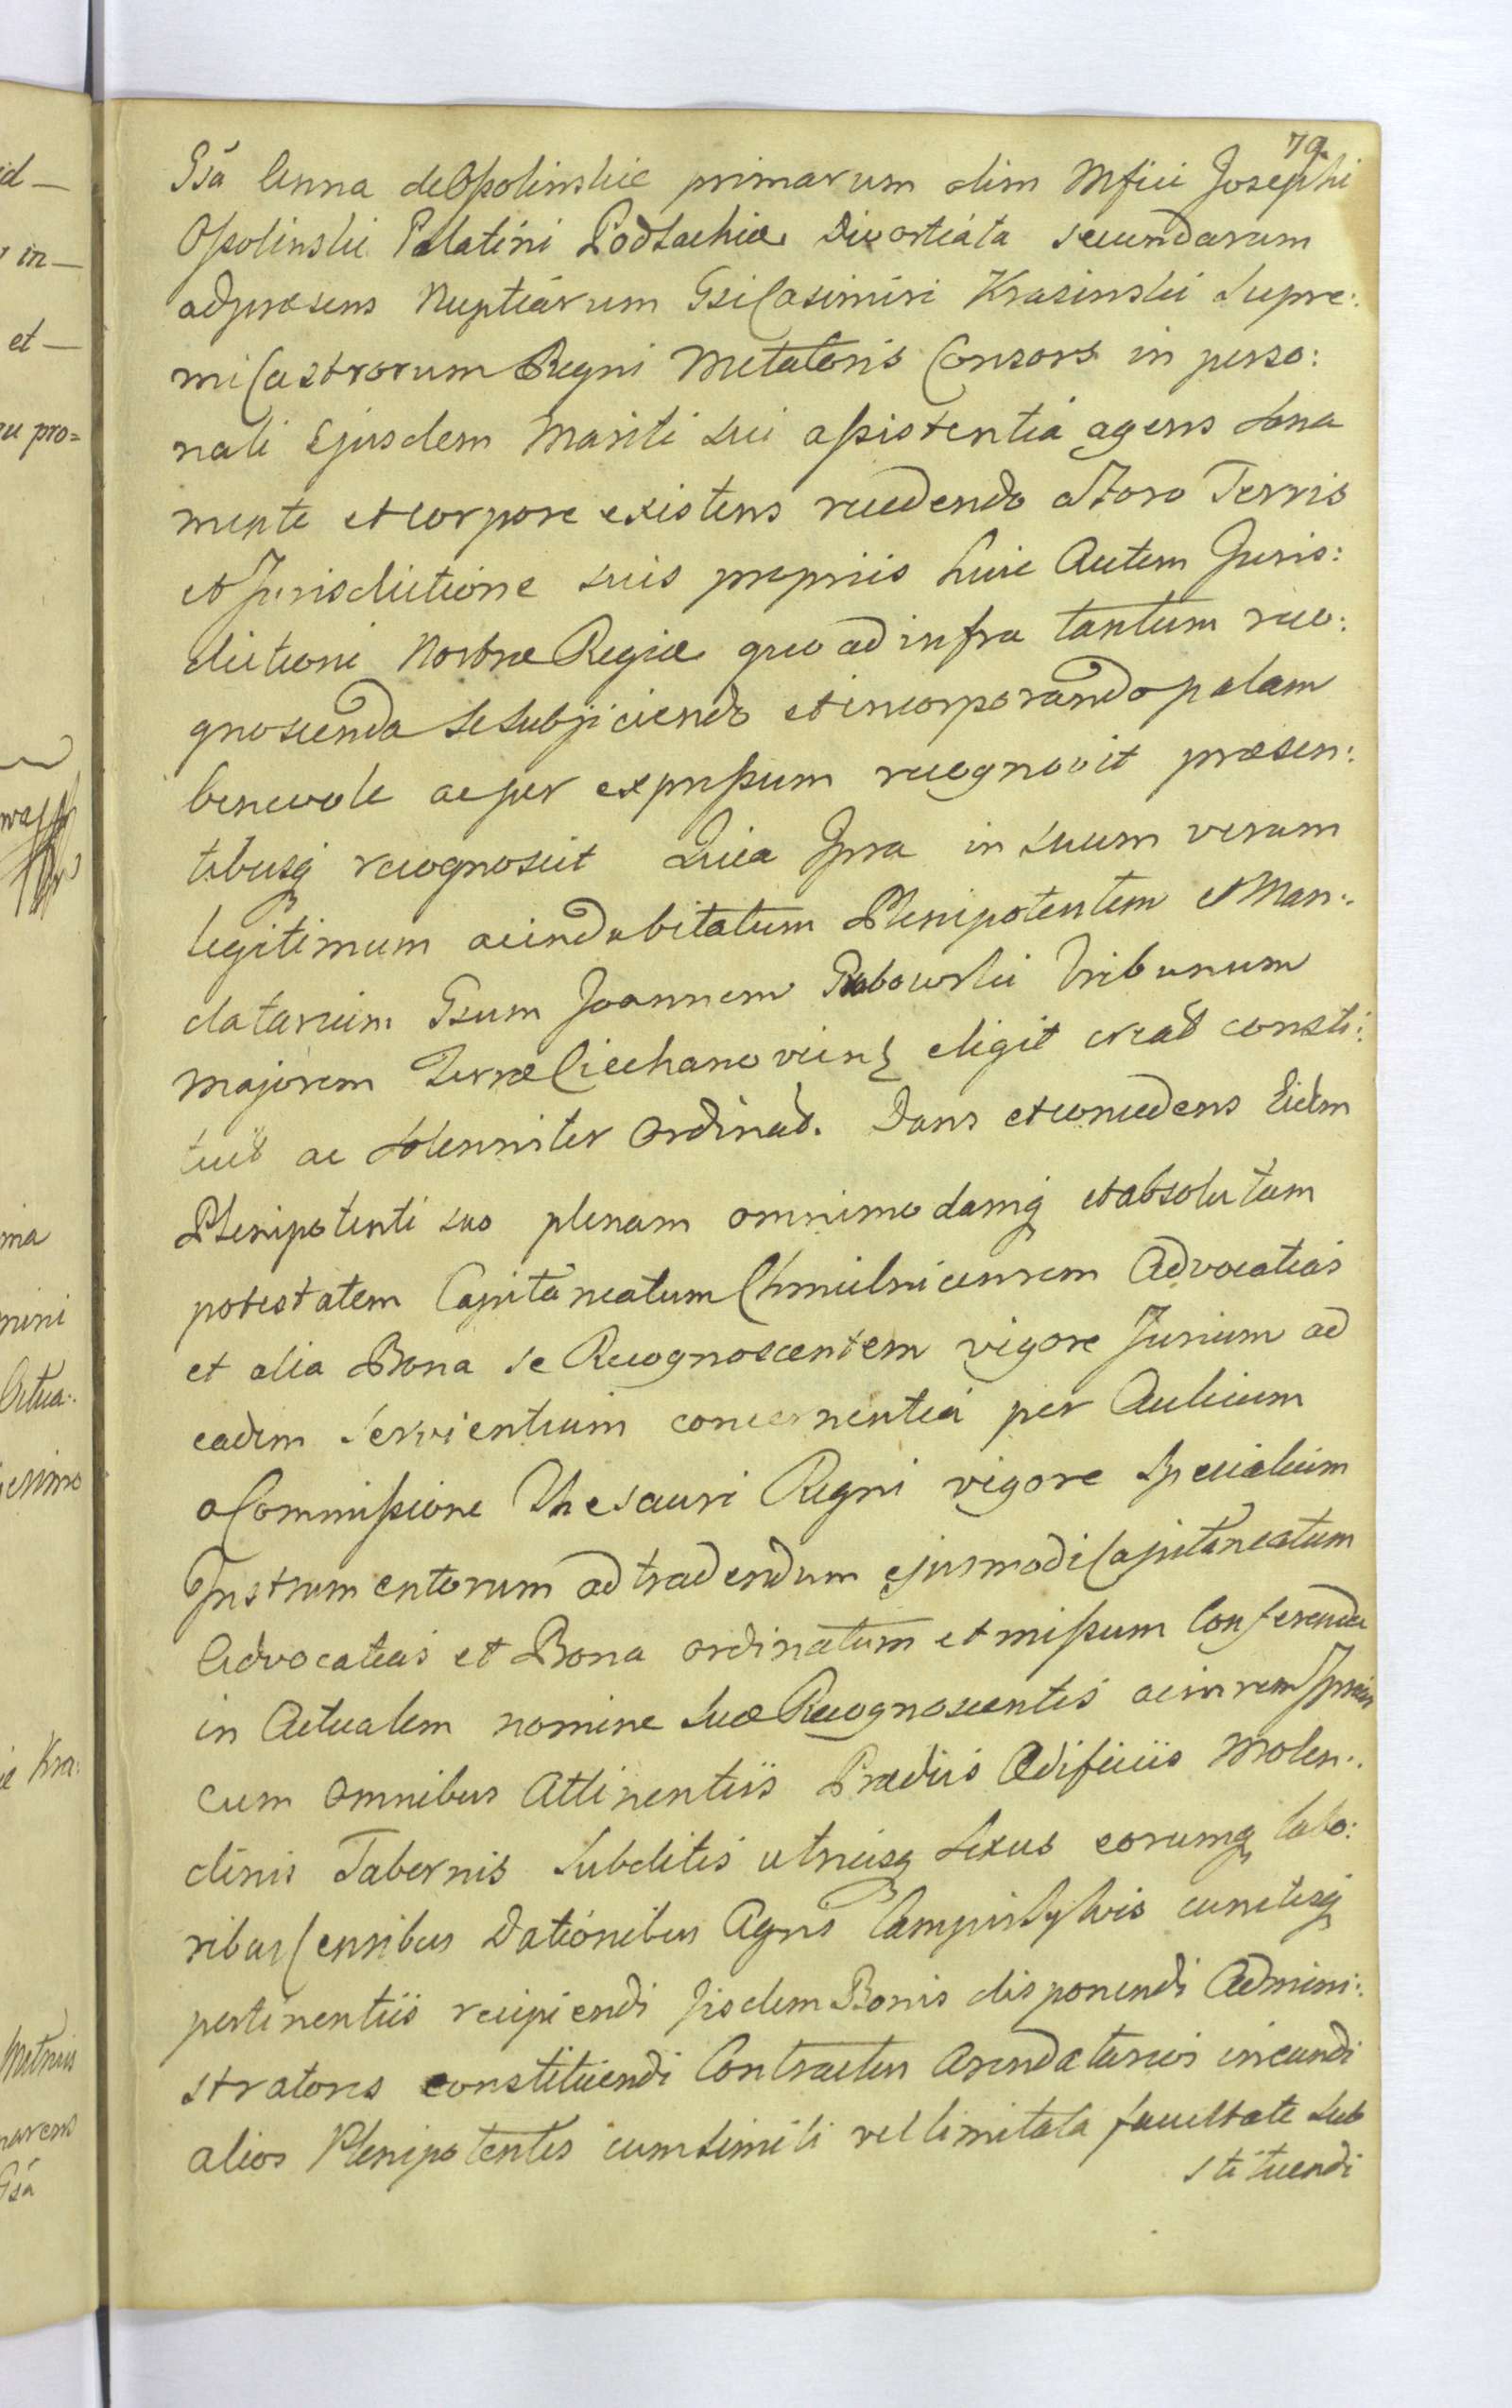 79.
Gsa Anna de Ossolinskie primarum olim Mfici Josephi
Ossolinski Palatini Podlachiæ Divortiata secundarum
ad præsens Nuptiarum Gsi Casimiri Krasinski Supre:
mi Castrorum Regni Metatoris Consors in perso:
nali Ejusdem Mariti sui assistentia agens sana
mente et corpore existens recedendo a Foro Terris
et Jurisdictione suis propriis huic Autem Juris:
dictioni Nostræ Regiæ quo ad infra tantum reco:
gnoscenda se subjiciendo et incorporando palam
benevole ac per expressum recognovit præsen:
tibusq recognoscit Quia Ipsa in suum verum
legitimum ac indubitatum Plenipotentem et Man:
datarium Gsum Joannem Grabowski Tribunum
majorem Terræ Ciechanoviens eligit creat consti:
tuit ac solenniter Ordinat. Dans et concedens Eidm
Plenipotenti suo plenam omnimodamq et absolutam
potestatem Capitaneatum Chmielnicensem Advocatias
et alia Bona se Recognoscentem vigore Jurium ad
eadem Servientium concernentia per Aulicum
a Commissione Thesauri Regni vigore Specialium
Instrumentorum ad tradendum ejusmodi Capitaneatum
Advocatias et Bona ordinatum et missum Conferenda
in Actualem nomine suæ Recognoscentis ac in rem Ipsius
cum omnibus Attinentiis Prædiis Ædificiis Molen:
dinis Tabernis Subditis utriusq Sexus eorumq labo:
ribus Censibus Dationibus Agris Campis Sylvis cunctisq
pertinentiis recipiendi Iisdem Bonis disponendi Admini:
stratores constituendi Contractus Arendatorios ineundi
alios Plenipotentes cum simili vel limitata facultate sub
stituendi
id —
in —
et —
pro=
ma
Actua:
Kra:
Gsa